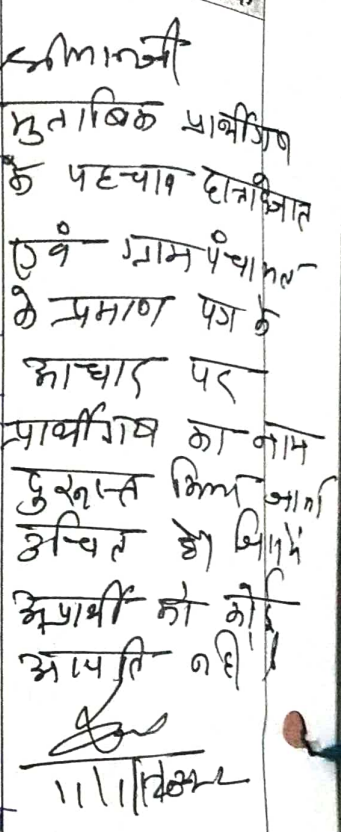 श्रीमानजी
मुताबिक प्रार्थीगण
के पहचान दस्तावेजात
एवं ग्राम पंचायत
के प्रमाण पत्र के
आधार पर
प्रार्थीगण का नाम
दुरुस्त किया जाना
उचित है। जिसमें
अप्रार्थी को कोई
आपत्ति नहीं है